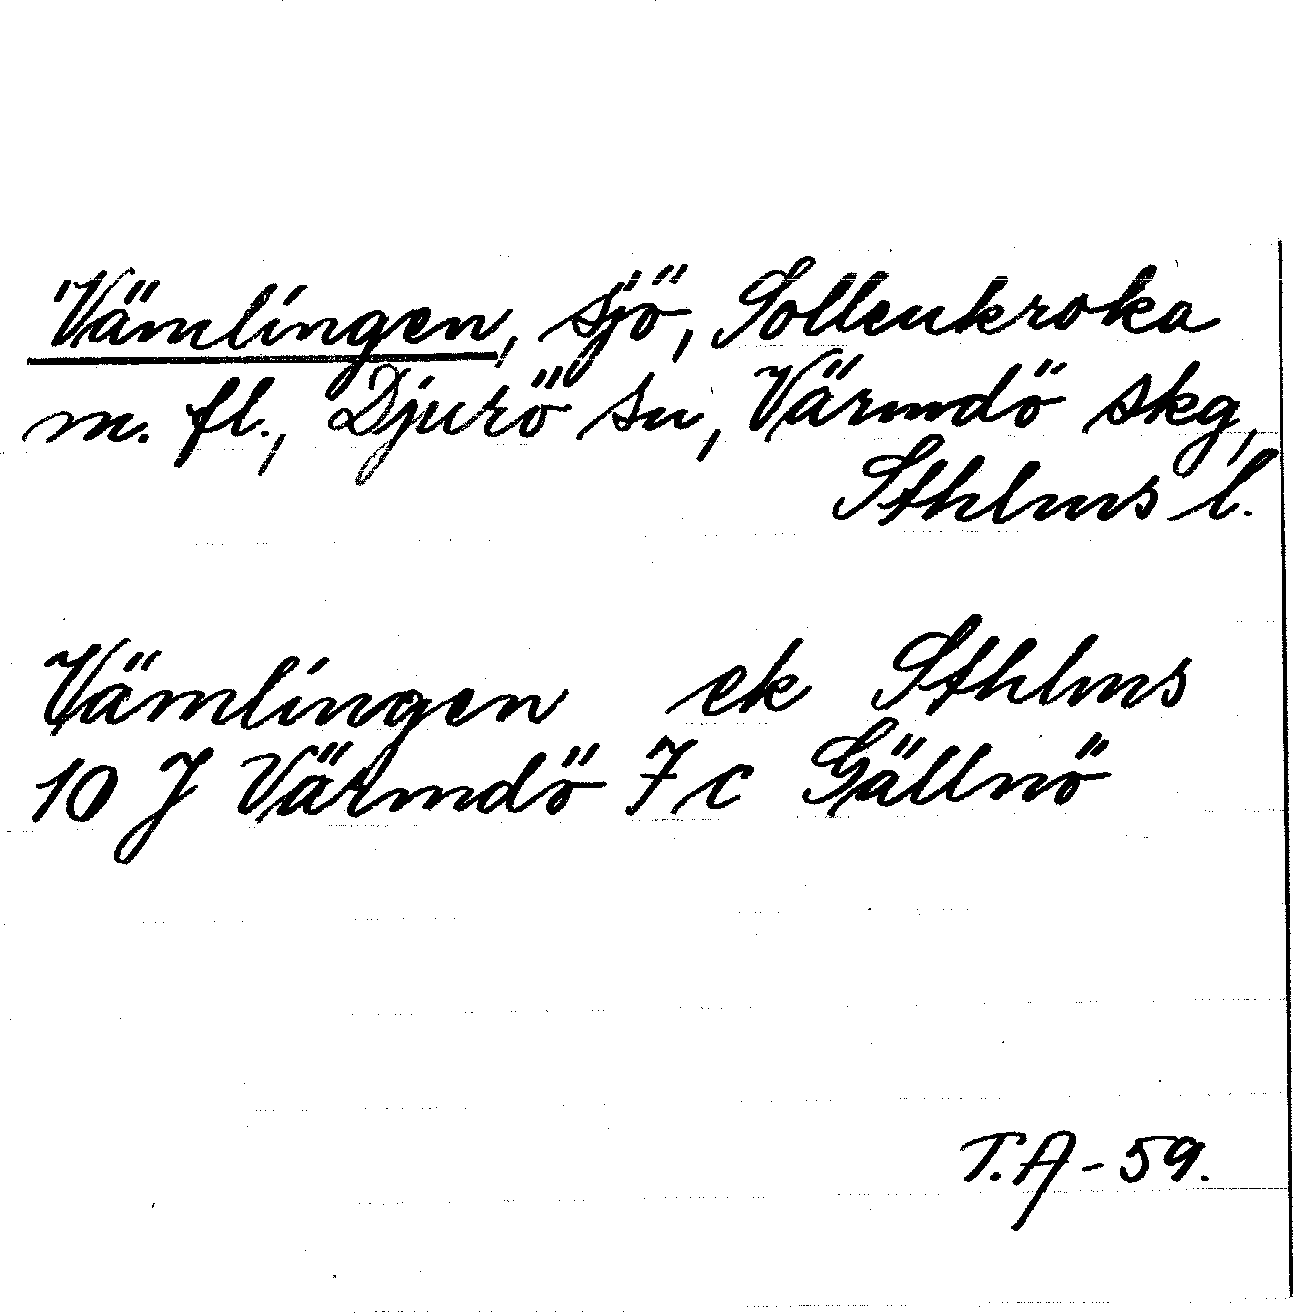 Vämlingen, sjö, Sollenkroka
m. fl., Djurö sn, Värmdö skg,
Sthlms l.
Vämlingen ek Sthlms
10 J Värmdö 7 c Gällnö
T.A-59.